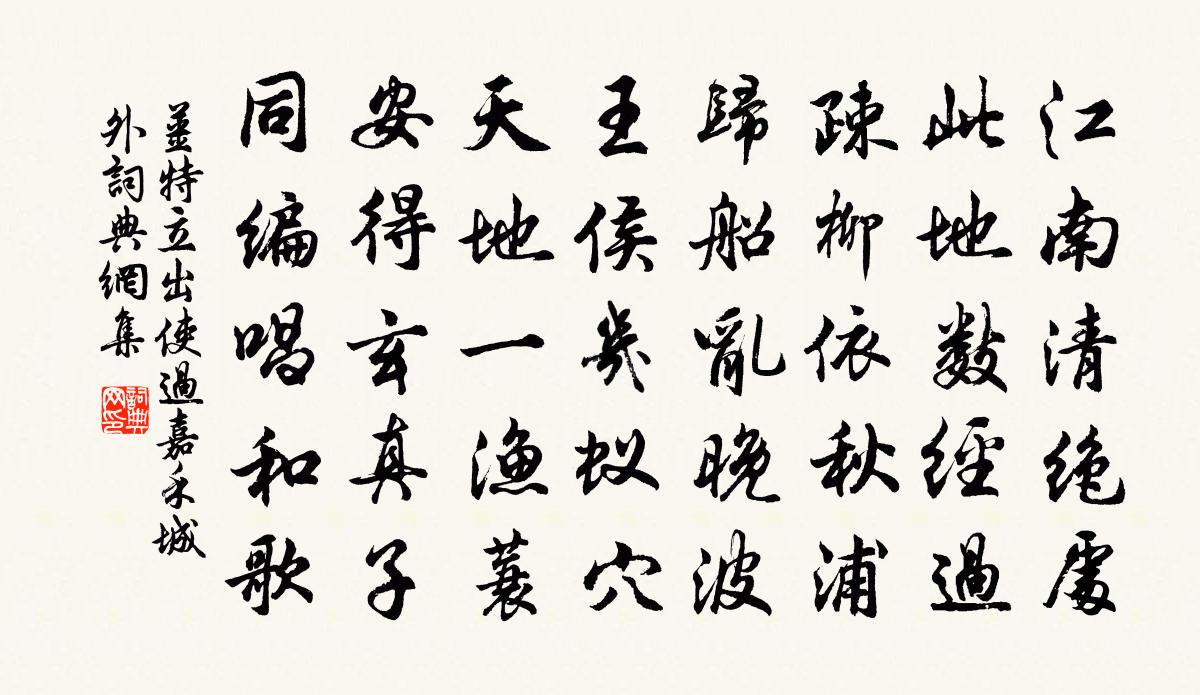 江南清絶處
此地數經過
疎柳依秋浦
歸船亂晚波
王侯幾蚁穴
天地一漁蓑
安得玄真子
同编唱和歌
姜特立出使過嘉禾城
外詞典網集
詞典网印